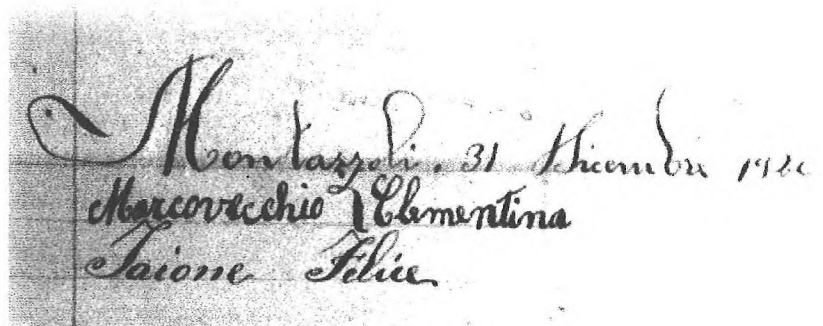 Montazzoli. 31 Dicembre
Marcovecchio Clementina
Iaione Felice